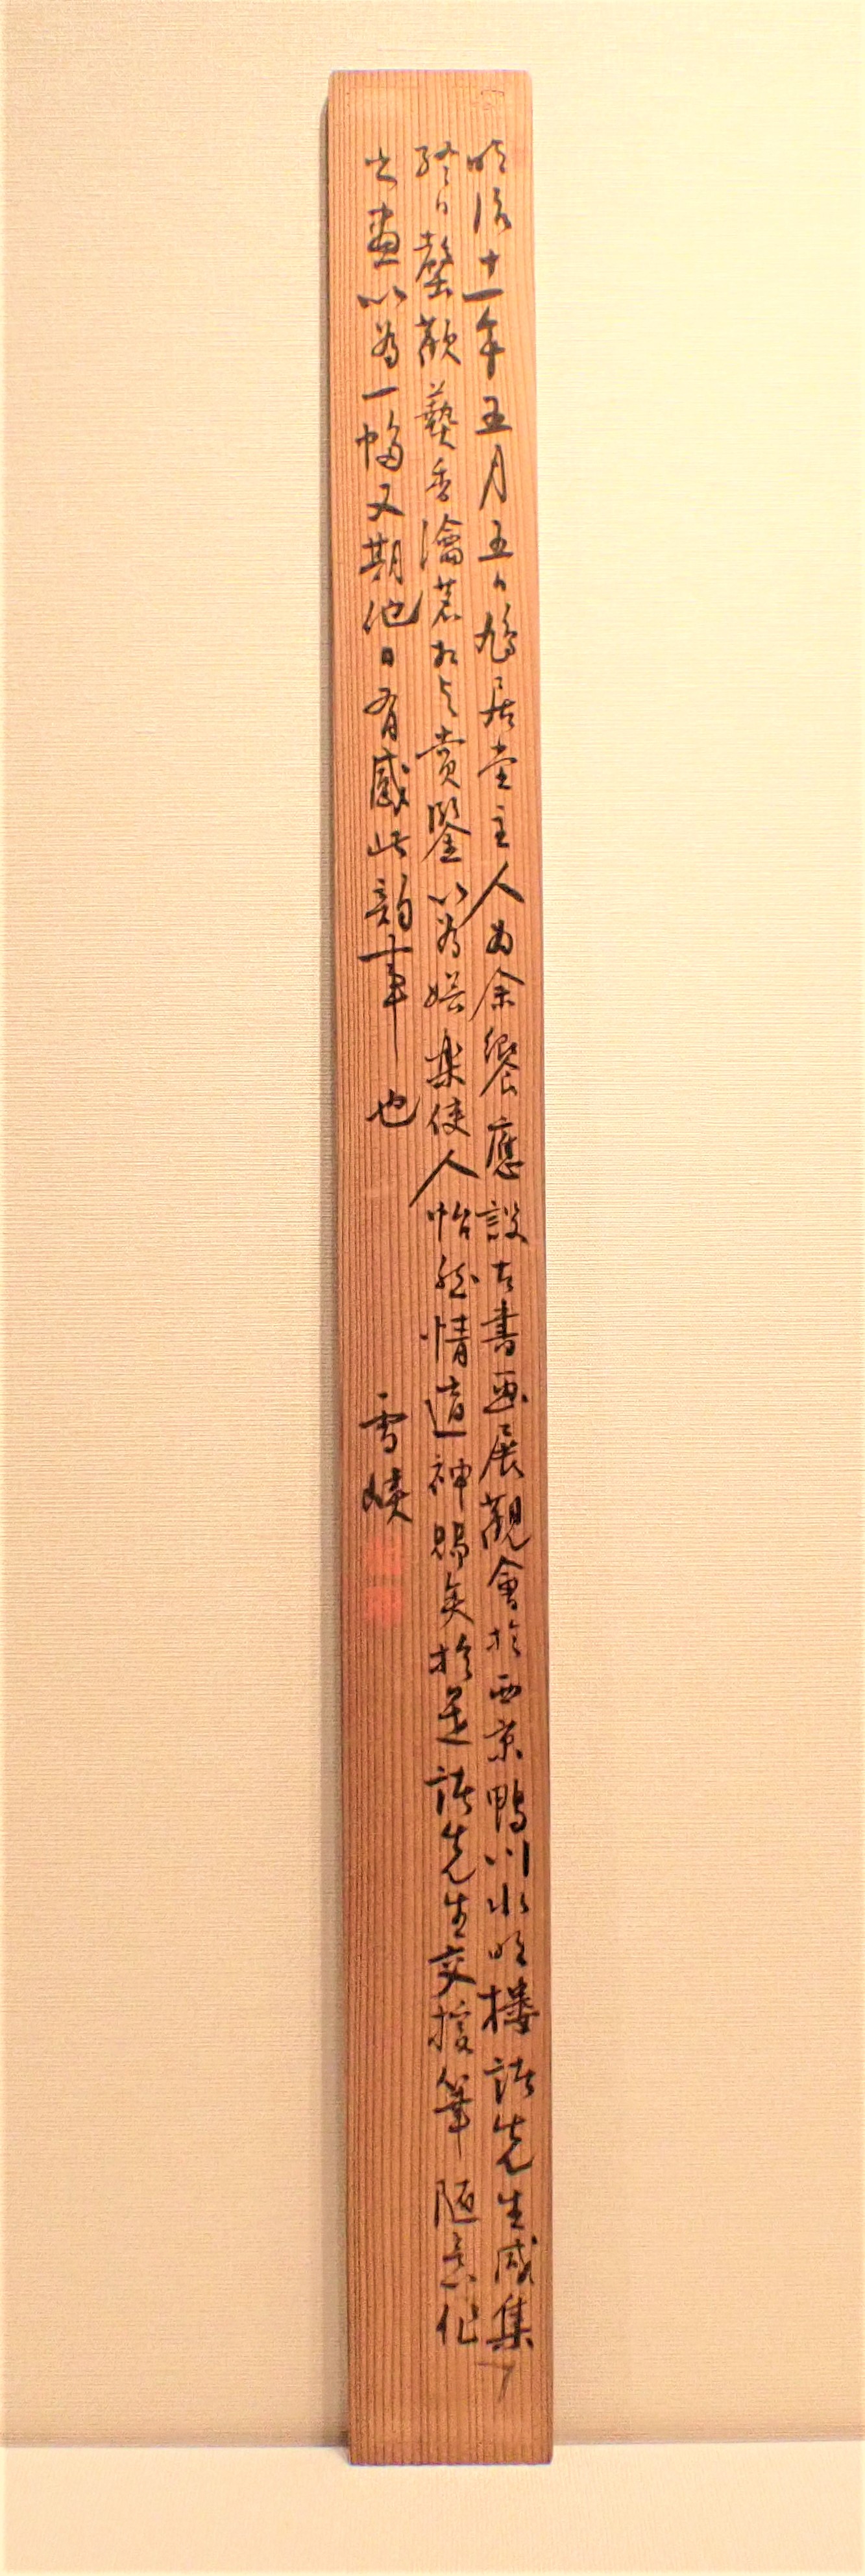 明治十一年五月五日鳩居堂主人為余饗應設古書画展観會於西京鴨川水明楼諸先生咸集
終日罄歡藝香瀹茗相与賞鑒以為娯楽使人怡然情適神賜矣於是諸先生交援筆随意作
書画以為一幅又期他日有感此韵事也
雪